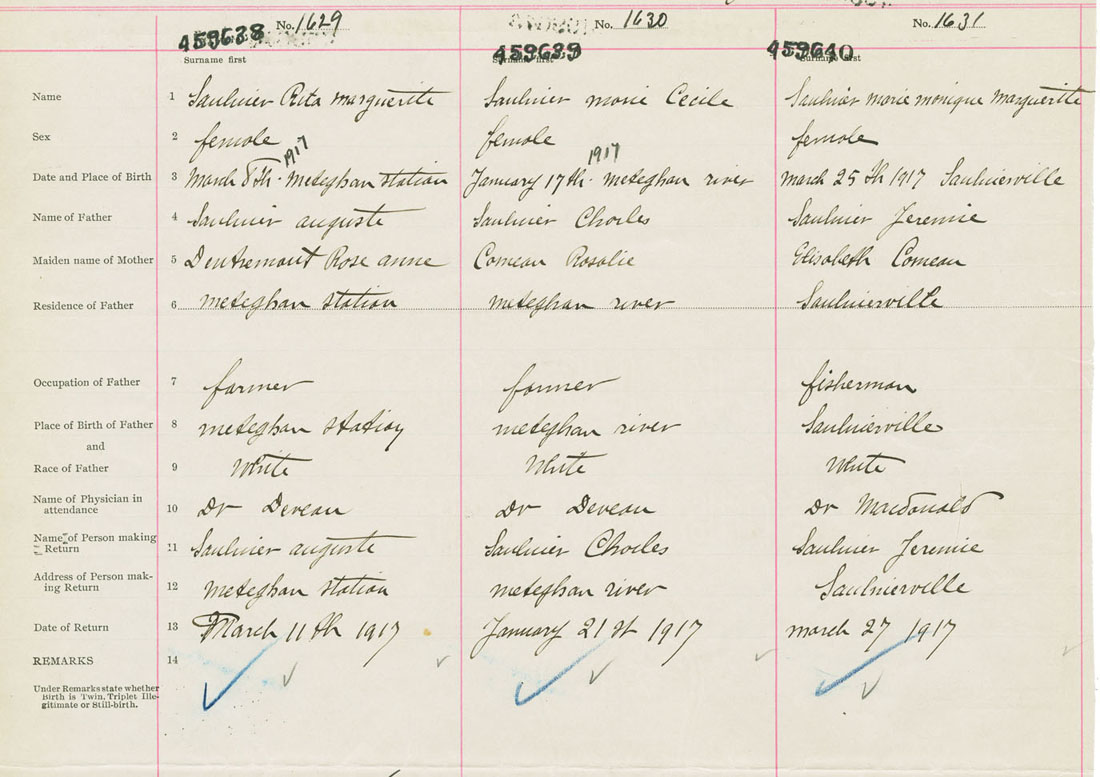 No. 1629 No. 1630 No. 1631
459638 459639 459640
Surname first Surname first Surname first
Name 1 Saulnier Rita marguerite Saulnier marie Cecile Saulnier marie monique marguerite
Sex 2 female female female
1917 1917
Date and Place of Birth 3 march 8th. meteghan station January 17th. meteghan river march 25th 1917 Saulnierville
Name of Father 4 Saulnier auguste Saulnier Charles Saulnier Jeremie
Maiden name of Mother 5 Dentremont Rose anne Comeau Rosalie Elisabeth Comeau
Residence of Father 6 meteghan station meteghan river Saulnierville
Occupation of Father 7 farmer farmer fisherman
Place of Birth of Father 8 meteghan station meteghan river Saulnierville
and
Race of Father 9 White White White
Name of Physician in
attendance 10 Dr Deveau Dr Deveau Dr Macdonald
Name of Person making
Return 11 Saulnier auguste Saulnier Charles Saulnier Jeremie
Address of Person mak-
ing Return 12 meteghan station meteghan river Saulnierville
Date of Return 13 March 11th 1917 January 21st 1917 march 27 1917
REMARKS 14
Under Remarks state whether
Birth is Twin, Triplet Ille-
gitimate or Still-birth.